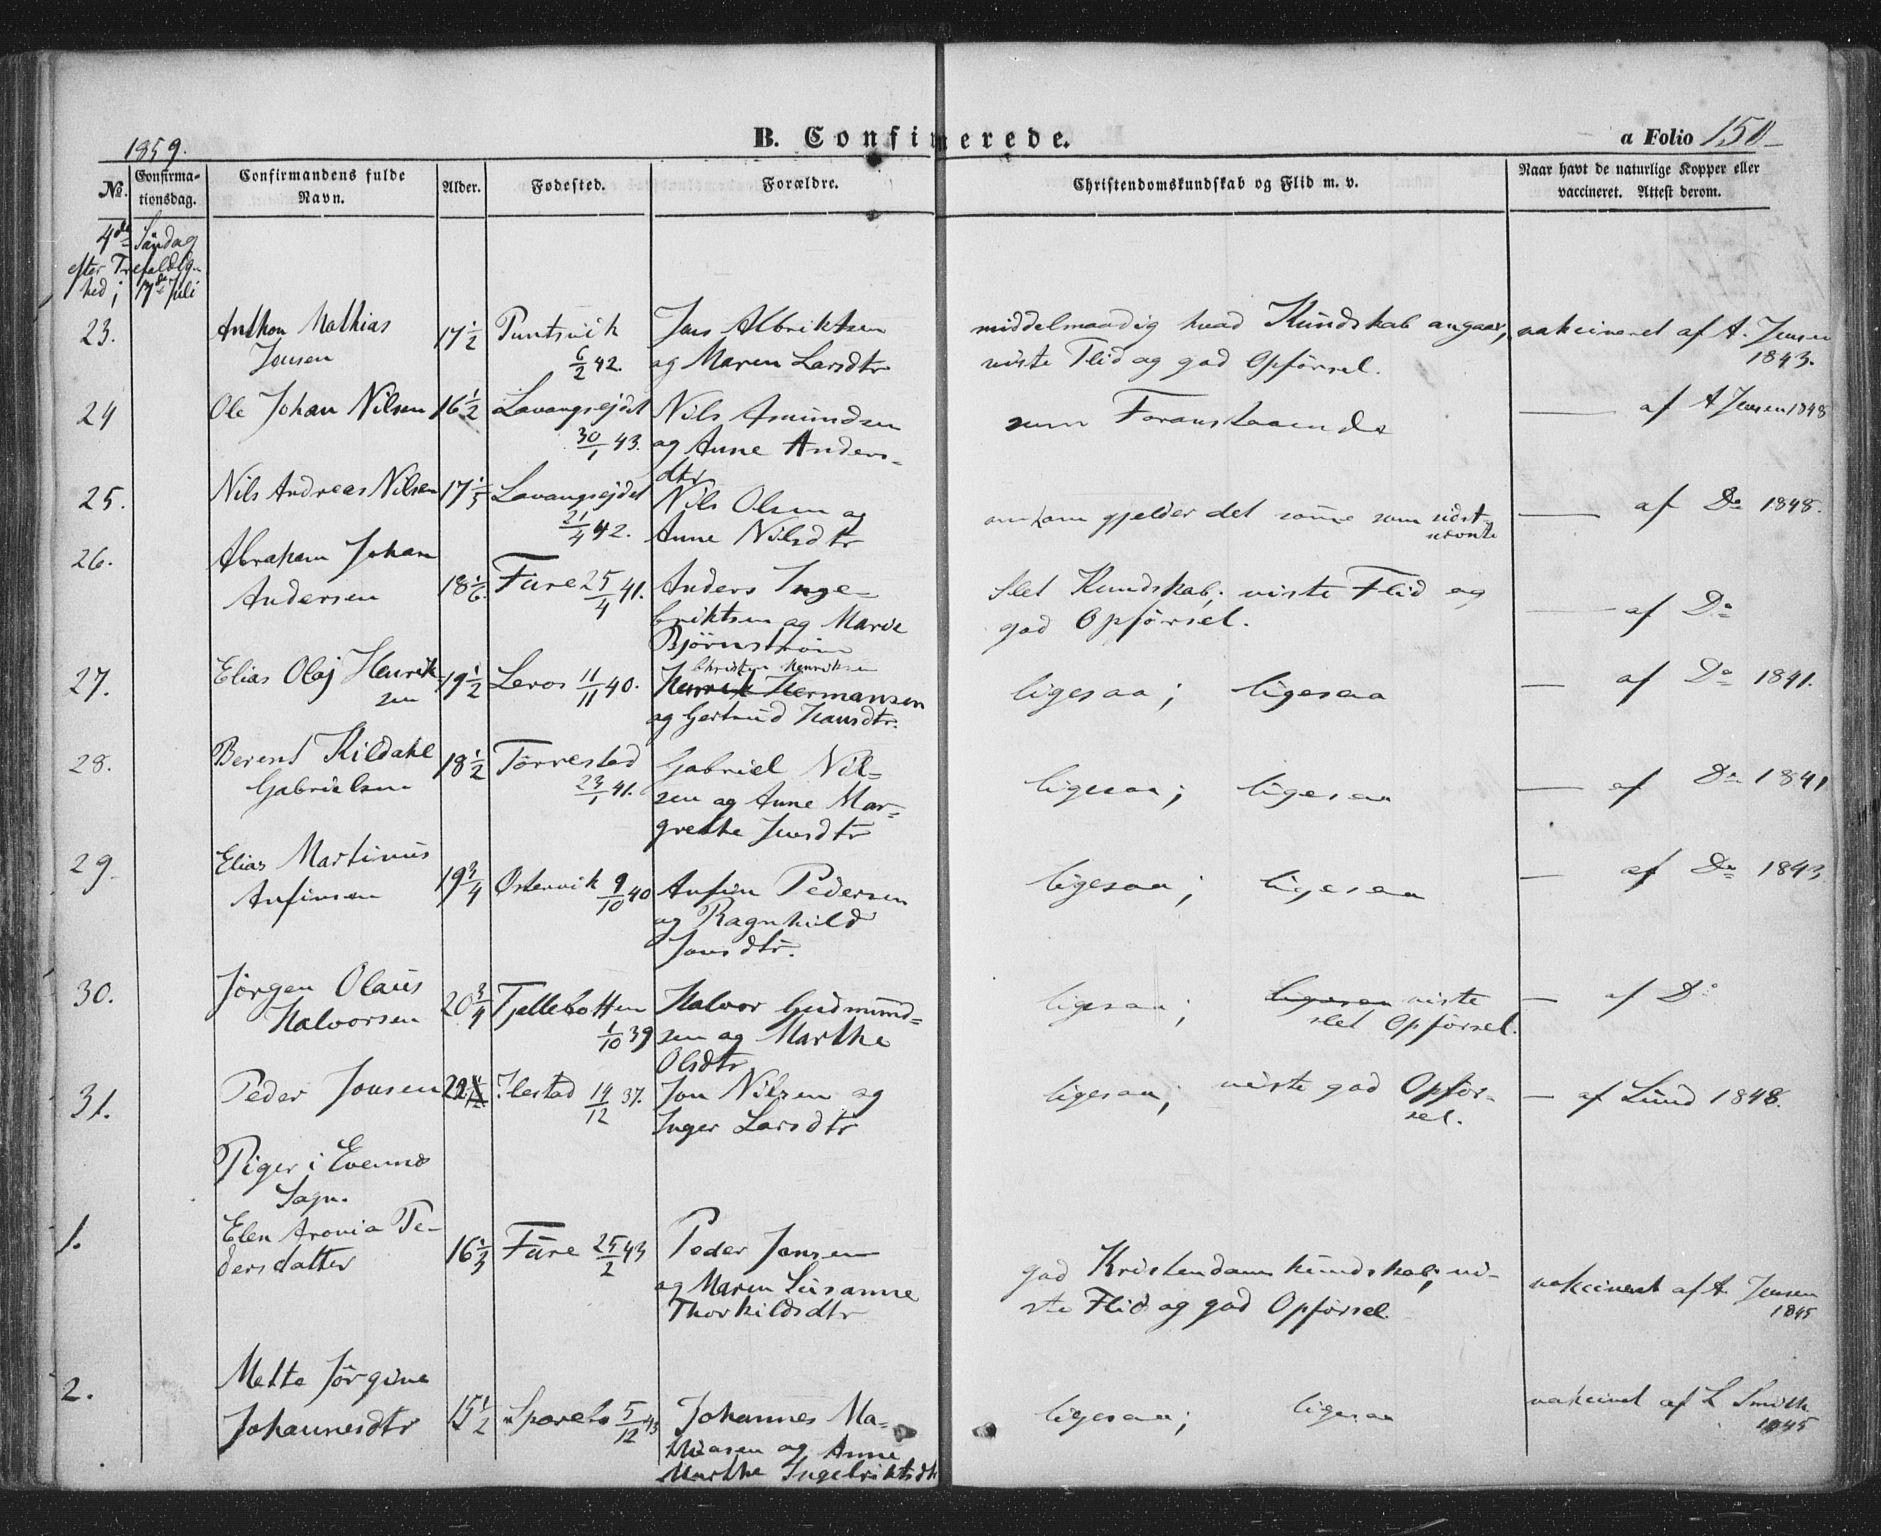 1859.
B. Confirmerede.
a Folio 150
No.
Confirma-
tionsdag.
Confirmandens fulde
Navn.
Alder.
Fødested.
Forældre.
Christendomskundskab og Flid m. v.
Naar havt de naturlige Kopper eller
vaccineret. Attest derom.
4de Søndag
efter Trefoldig-
hed; 17de Juli
23. Anthon Mathias 17 1/2 Puntsvik Jens Albriktsen middelmaadig hvad Kundskab angaar, vakcineret af A. Jensen
Jensen 6/2 42. og Maren Larsdtr viste Flid og god Opførsel. 1843.
24 Ole Johan Nilsen 16 1/2 Lavangsejdet Nils Amundsen som Foranstaaende — af A Jensen 1848
30/1 43. og Anne Anders-
dtr
25. Nils Andreas Nilsen 17 1/3 Lavangsejdet Nils Olsen og om ham gjelder det samme som sidst- — af Do 1848.
21/4 42. Anne Nilsdtr nævnte
26. Abraham Johan
Andersen 18 1/6. Fure 25/4 41. Anders Inge- slet Kundskab; viste Flid og — af Do
briktsen og Marie god Opførsel.
Bjørnstrøm
27. Elias Olaj Henrik- 19 1/2 Leros 11/11 40. Henrik Hermansen ligesaa; ligesaa — af Do 1841.
sen og Gertrud Hansdtr.
28. Berent Kildahl 18 1/2 Tørrestad Gabriel Nil- ligesaa; ligesaa — af Do 1841
Gabrielsen 23/1 41. sen og Anne Mar-
grethe Jensdtr
29. Elias Martinus
Anfinsen 19 3/4 Østervik 9/10 40 Anfin Pedersen ligesaa; ligesaa — af Do 1843
og Ragnhild
Jonsdtr.
30. Jørgen Olaus
Halvorsen 20 3/4 Tjellebotten Halvor Gudmund- ligesaa; ligesaa viste — af Do
1/10 39 sen og Marthe slet Opførsel.
Olsdtr
31. Peder Jonsen Ilestad 14/12 37. Jon Nilsen og ligesaa; viste god Opfør- — af Lund 1848.
Inger Larsdtr sel.
Piger i Evennes
Sogn.
1. Elen Aronia Pe-
dersdatter 16 1/3 Fure 25/2 43 Peder Jansen god Kristendomskundskab; vi- vakcineret af A Jensen
og Maren Susanne ste Flid og god Opførsel. 1845
Thorkildsdtr
2. Mette Jørgine
Johannesdtr 15 1/2 5/12 43 Johannes Ma- ligesaa; ligesaa vakcinet af L Smith
thiasen og Anne 1845
Marthe Ingebriktsdtr